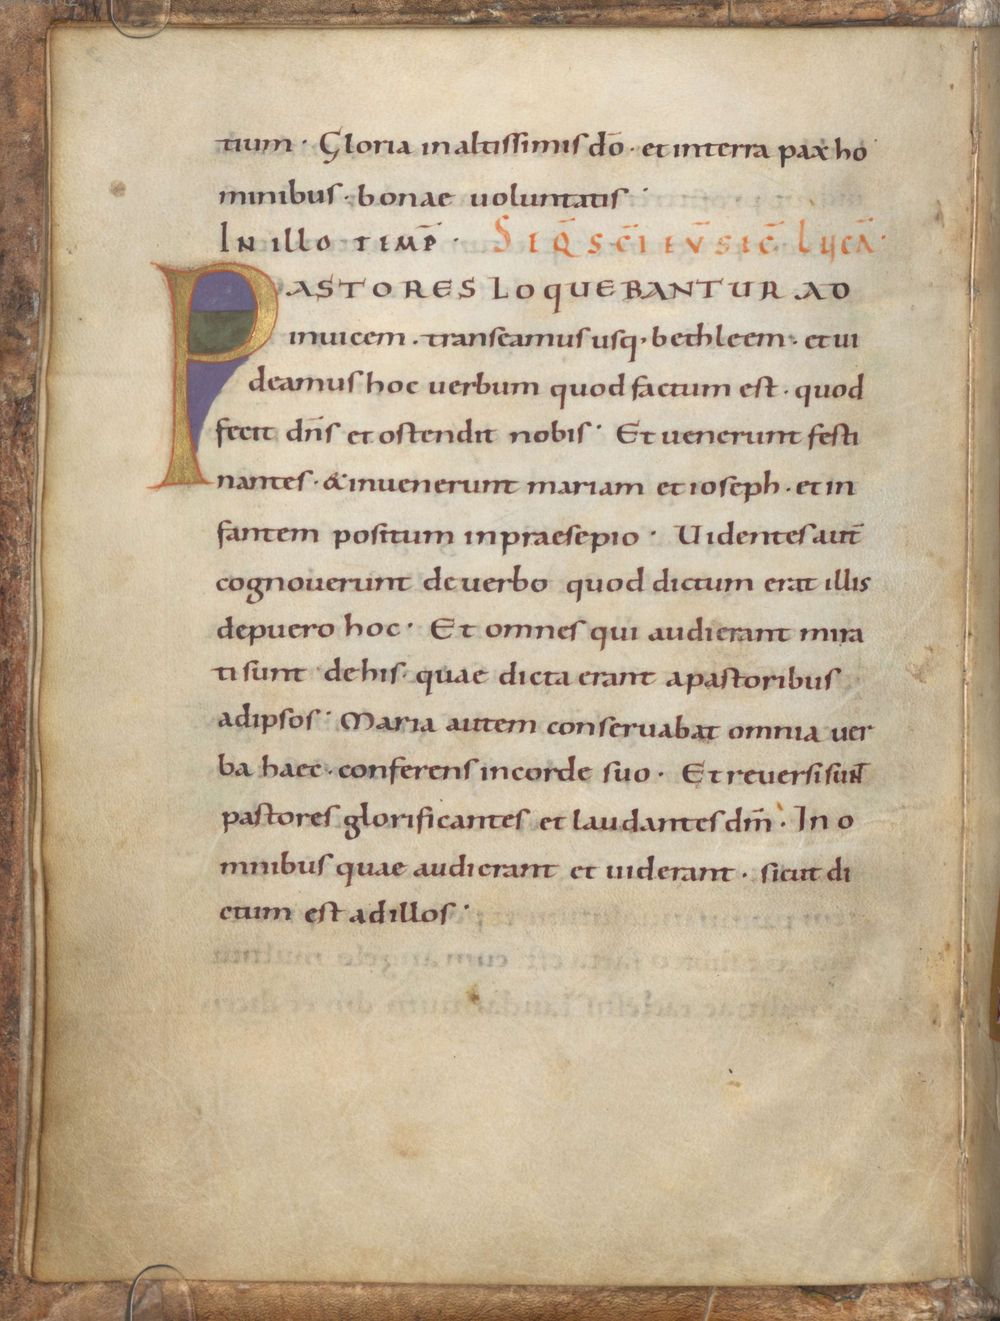 tium · Gloria inaltissimis dō · et interra pax ho
minibus · bonae uoluntatis ·
In illo timp̄ · SEQ̄ SC̄I EV̄ SEC̄ LUCĀ ·
PASTORES LOQUEBANTUR AD
inuicem · transeamus usq; bethleem · et ui
deamus hoc uerbum quod factum est · quod
fecit dn̄s et ostendit nobis · Et uenerunt festi
nantes · & inuenerunt mariam et ioseph · et in
fantem positum inpraesepio · Uidentes aut̄
cognouerunt deuerbo quod dictum erat illis
depuero hoc · Et omnes qui audierant mira
ti sunt dehis · quae dicta erant apastoribus
adipsos · Maria autem conseruabat omnia uer
ba haec · conferens incorde suo · Et reuersi sunt
pastores glorificantes et laudantes dm̄ · In o
mnibus quae audierant et uiderant · sicut di
ctum est adillos ·